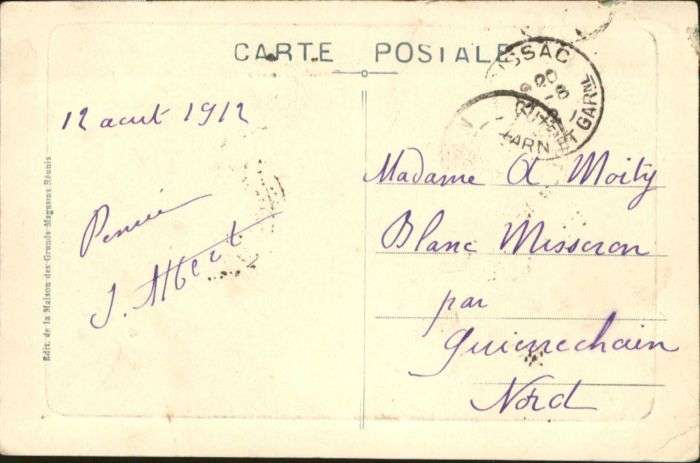 CARTE POSTALE
ISSAC
TARN ET GARNE
12 aout 1912
Pensée
J. Albert
Madame A. Moity
Blanc Misseron
par
Quievrechain
Nord
Edit. de la Maison des Grands Magasins Réunis